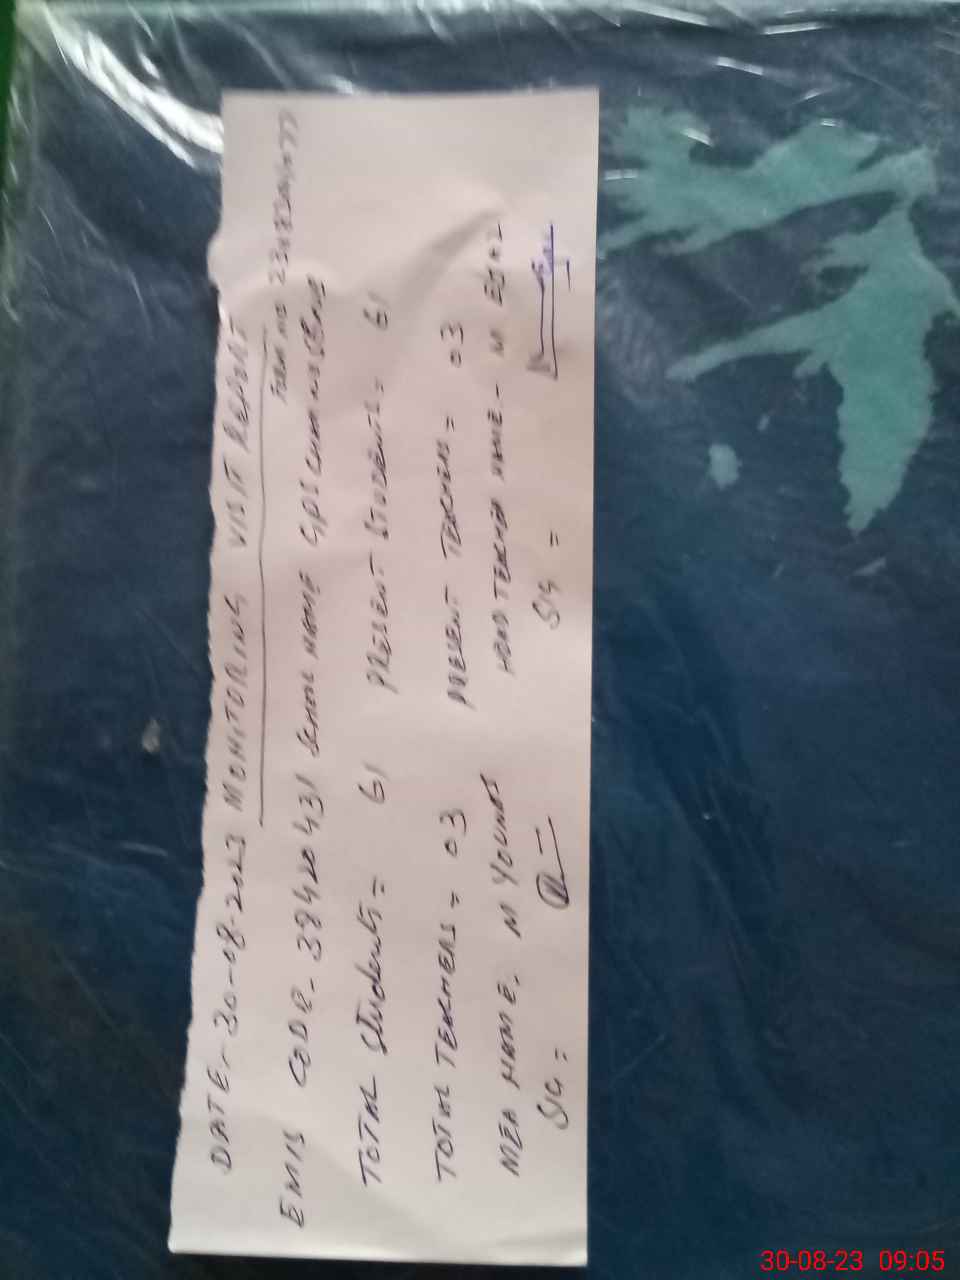 DATE - 30-08-2023 MONITORING VISIT REPORT
FORM NO
EMIS CODE - 38420431 SCHOOL NAME GPS
TOTAL Students = 61 PRESENT STUDENTS = 61
TOTAL TEACHERS = 03 PRESENT TEACHERS = 03
MEA NAME. M YOUNAS HEAD TEACHER NAME - M EJAZ
SIG = SIG =
30-08-23 09:05